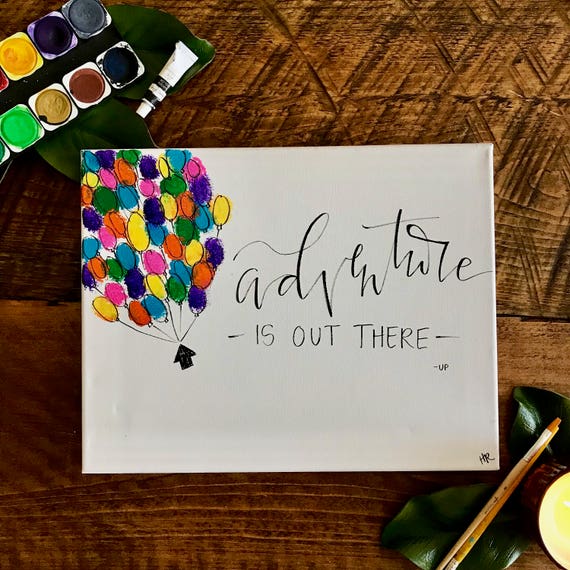 adventure
- IS OUT THERE -
-UP
HR